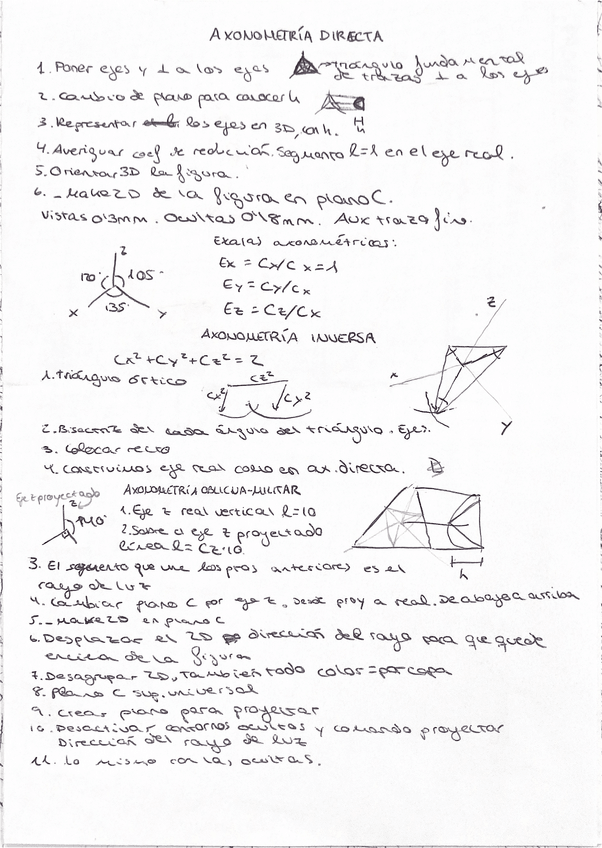 AXONOMETRÍA DIRECTA
1. Poner ejes y ⊥ a los ejes → triángulo fundamental
de trazas ⊥ a los ejes
2. Cambio de plano para conocer h
h
3. Representar los ejes en 3D, con h.
4. Averiguar coef de reducción. Segmento l=1 en el eje real.
5. Orientar 3D la figura.
6. _Make2D de la figura en plano C.
Vistas 0'3mm. Ocultas 0'18mm. Aux trazo fino.
Escalas axonométricas:
z
120° 105°
135°
x y
Ex = Cx/Cx = 1
Ey = Cy/Cx
Ez = Cz/Cx
z
AXONOMETRÍA INVERSA
Cx²+Cy²+Cz² = 2
1. Triángulo órtico
Cz²
Cx² Cy²
x
y
2. Bisectriz del cada ángulo del triángulo. Ejes.
3. Colocar recto
4. Construimos eje real como en ax. directa.
Eje z proyectado
z
140°
AXONOMETRÍA OBLICUA-MILITAR
1. Eje z real vertical l=10
2. Sobre el eje z proyectado
línea l = Cz·10
h
3. El segmento que une los ptos anteriores es el
rayo de luz
4. Cambiar plano C por eje z, desde proy a real. De abajo a arriba
5. _Make2D en plano C
6. Desplazar el 2D dirección del rayo para que quede
encima de la figura
7. Desagrupar 2D, también todo color = por capa
8. Plano C sup. universal
9. Crear plano para proyectar
10. Desactivar contornos ocultos y comando proyectar
Dirección del rayo de luz
11. Lo mismo con las ocultas.